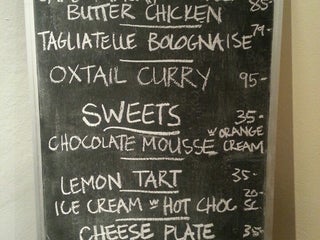 BUTTER CHICKEN 85-
TAGLIATELLE BOLOGNAISE 79-
OXTAIL CURRY 95-
SWEETS 35-
CHOCOLATE MOUSSE W ORANGE CREAM
LEMON TART 35-
ICE CREAM W HOT CHOC SC. 20-
CHEESE PLATE 35-